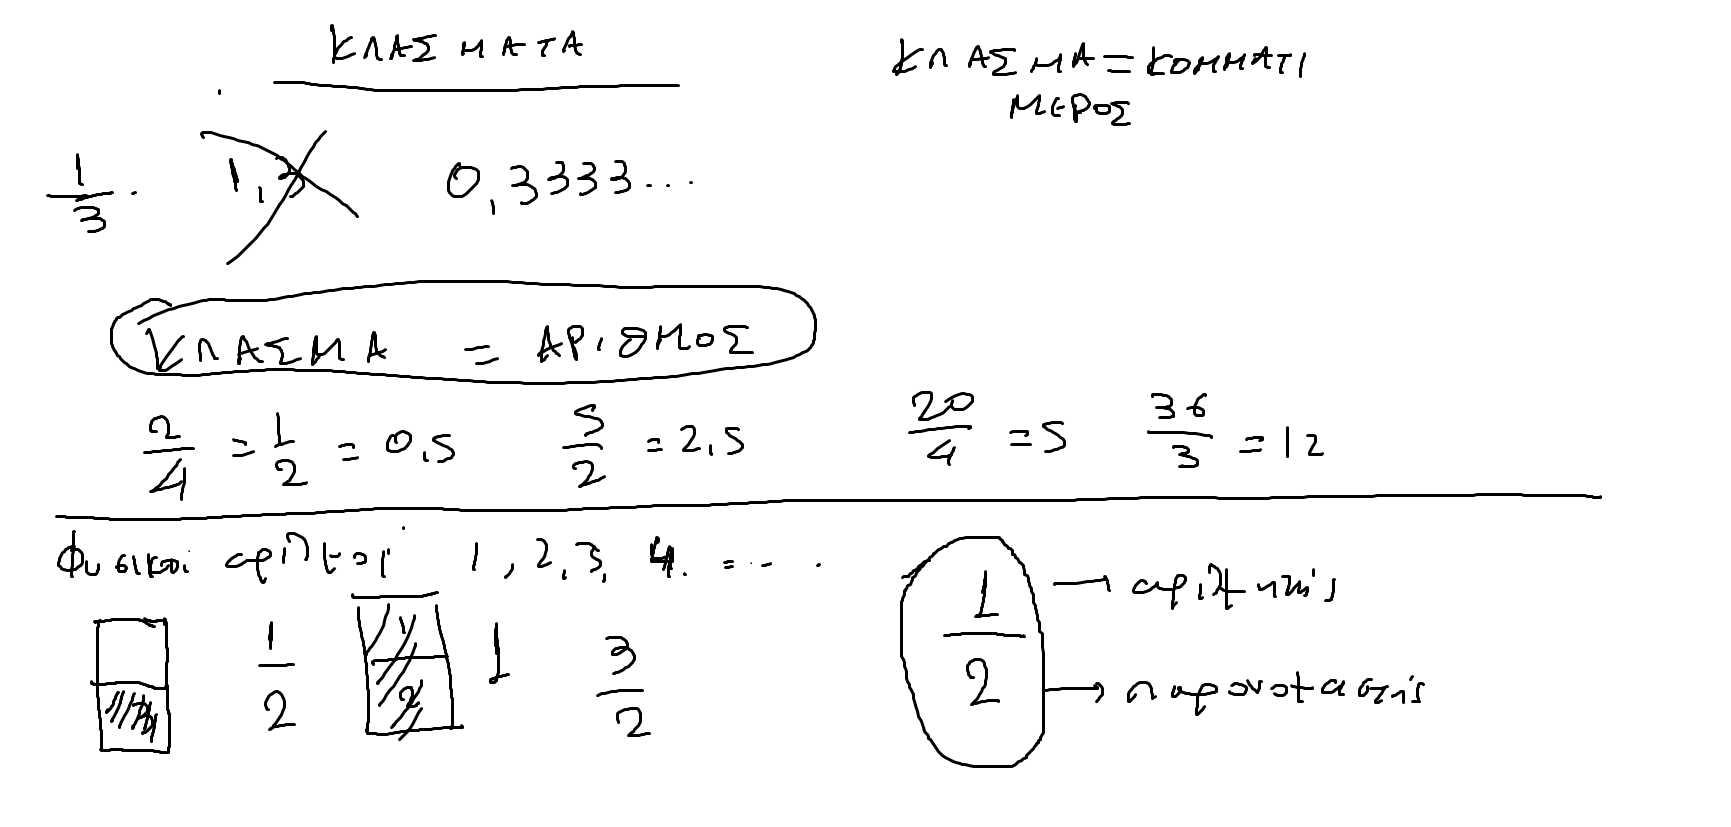 ΚΛΑΣΜΑΤΑ
ΚΛΑΣΜΑ = ΚΟΜΜΑΤΙ
ΜΕΡΟΣ
1/3 1,3 0,3333...
ΚΛΑΣΜΑ = ΑΡΙΘΜΟΣ
2/4 = 1/2 = 0,5 5/2 = 2,5 20/4 = 5 36/3 = 12
Φυσικοί αριθμοί 1, 2, 3, 4. ....
1/2 1 2 1 3/2
1 → αριθμητής
2 → παρονομαστής